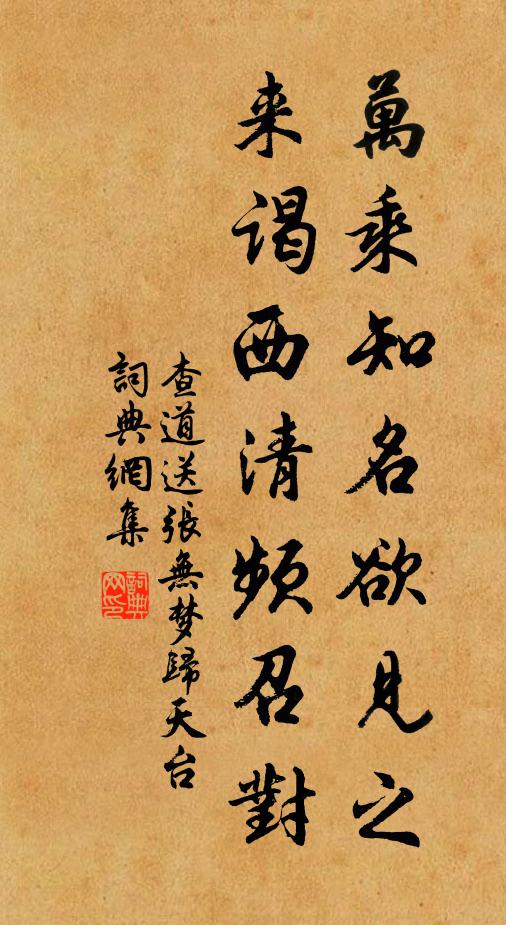 萬乘知名欲見之
来謁西清頻召對
查道送張無梦歸天台
詞典網集
詞典网印